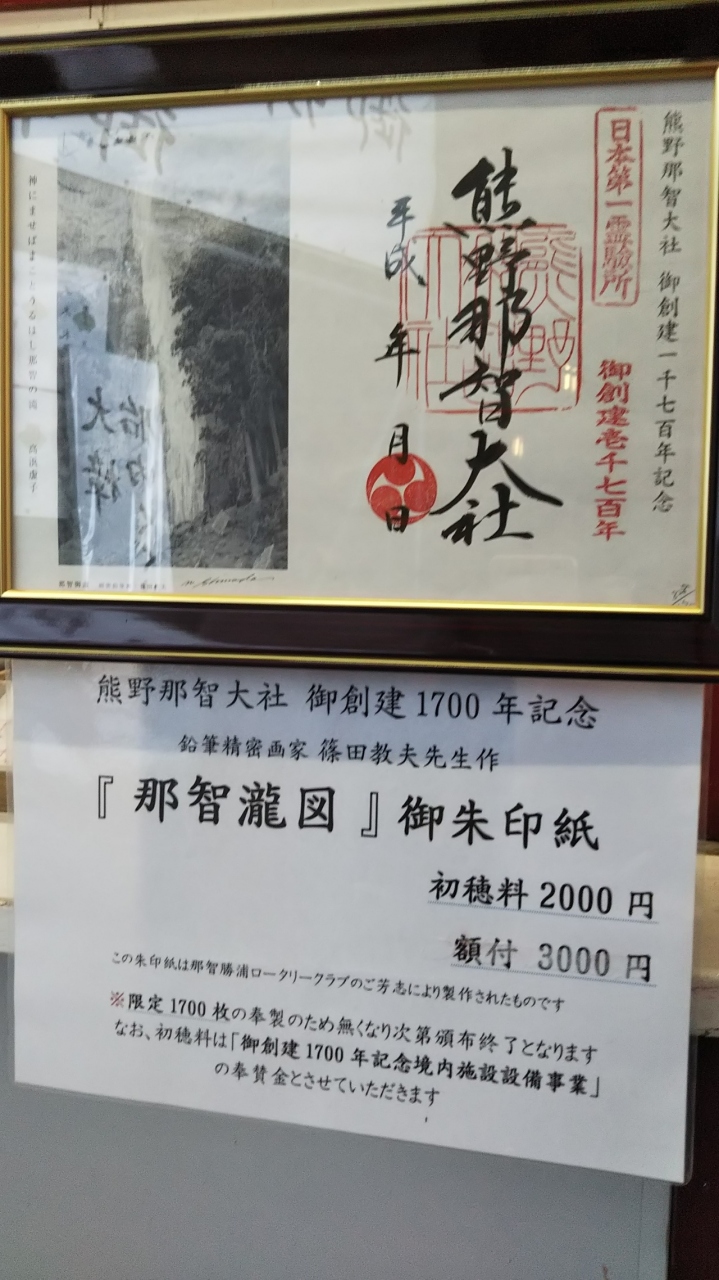 熊野那智大社 御創建一千七百年記念
日本第一霊験所
御創建壱千七百年
熊野那智大社
平成 年 月 日
神にませばまことうるはし那智の滝 高浜虚子
熊野那智大社 御創建1700年記念
鉛筆精密画家 篠田教夫先生作
『那智瀧図』御朱印紙
初穂料 2000 円
額付 3000 円
この朱印紙は那智勝浦ロータリークラブのご芳志により製作されたものです
※限定1700枚の奉製のため無くなり次第頒布終了となります
なお、初穂料は「御創建1700年記念境内施設設備事業」
の奉賛金とさせていただきます